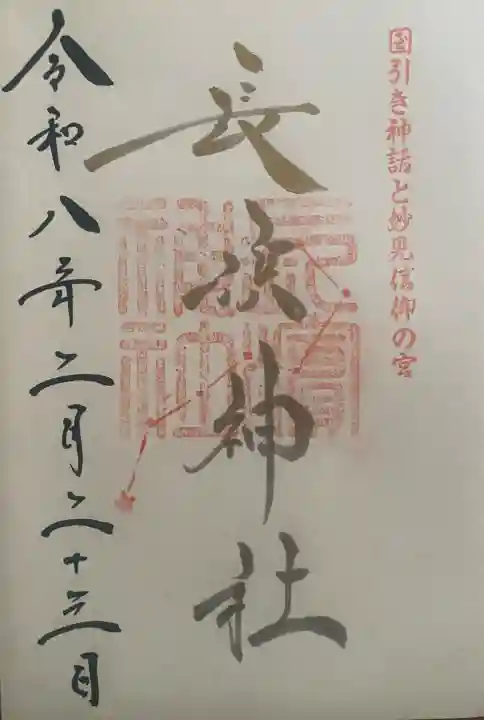 国引き神話と妙見信仰の宮
長浜神社
令和八年二月二十三日